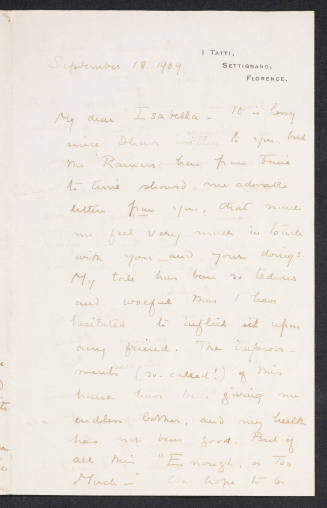 I TATTI,
SETTIGNANO,
FLORENCE.
September 18. 1909
My dear Isabella - It is long
since I have written to you, but
the Rainers have from time
to time showed me adorable
letters from you, that made
me feel very much in touch
with you and your doings.
My tale has been so tedious
and woeful that I have
hesitated to inflict it upon
any friend. The improve-
ments (so-called!) of this
house have been giving me
endless bother, and my health
has not been good. But of
all this "Enough, or Too
Much -" We hope to be